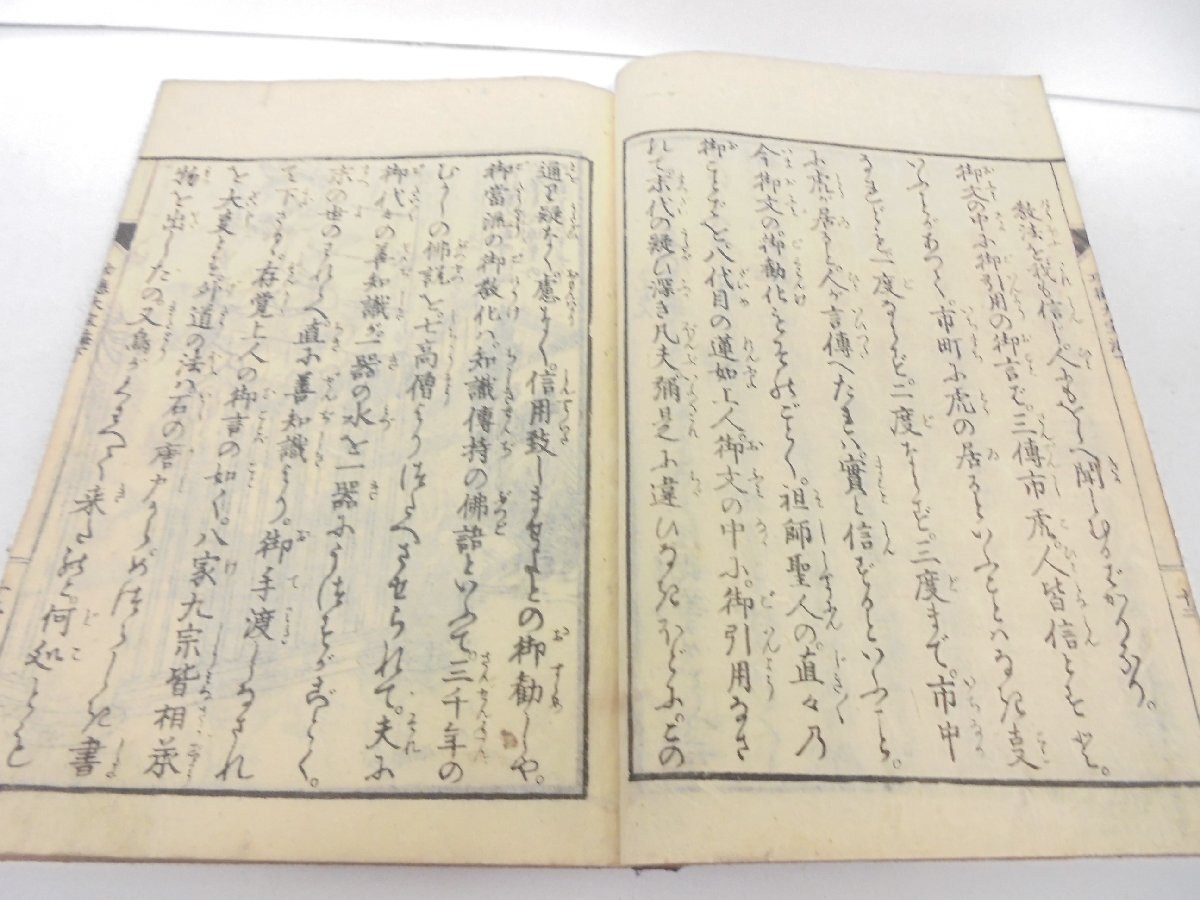 教法を我も信じ。人にもをしへ聞しむるばかりなり。
御文の中に御引用の御言で。三傳市虎。人皆信とすと。
いふがあつて。市町に虎の居るといふことはなき㕝
なれども一度ならず。二度ならず。三度まで。市中
に虎が居ると。人が言傳へたれば實と信ずるといふこと。
今御文の御勧化もその
ごとく。祖師聖人の。直々乃
御ことばを。八代目の蓮如上人。御文の中に。御引用なさ
れて。末代の疑ひ深き凡夫。彌是に違ひなきほどに。この
通り疑なく慮なく。信用致しませよとの御勧しや。
御當流の御教化は。知識傳持の佛語といふて。三千年の
むかしの佛説を。七高僧より
つたへさせられて。夫
御代々の善知識が一器の水を一器にうつすがごとく。
末の世のわれへ直に善知識より。御手渡しなされ
て下さる。存覚上人の御言の如く。八家九宗皆相承
を大㕝とす。外道の法は石の
物を出したの又
がくはへて来たの。何処
書